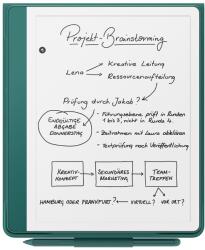 Projekt-Brainstorming
Lena
Kreative Leitung
Ressourcenaufteilung
Prüfung durch Jakob?
ENDGÜLTIGE
ABGABE
DONNERSTAG
- Führungsebene prüft in Runden
1 bis 3, nicht in Runde 4.
- Zeitrahmen mit Laura abklären
- Textprüfung nach Veröffentlichung
KREATIV-
KONZEPT
SEKUNDÄRES
MARKETING
TEAM-
TREFFEN
HAMBURG ODER FRANKFURT? VIRTUELL? VOR ORT?